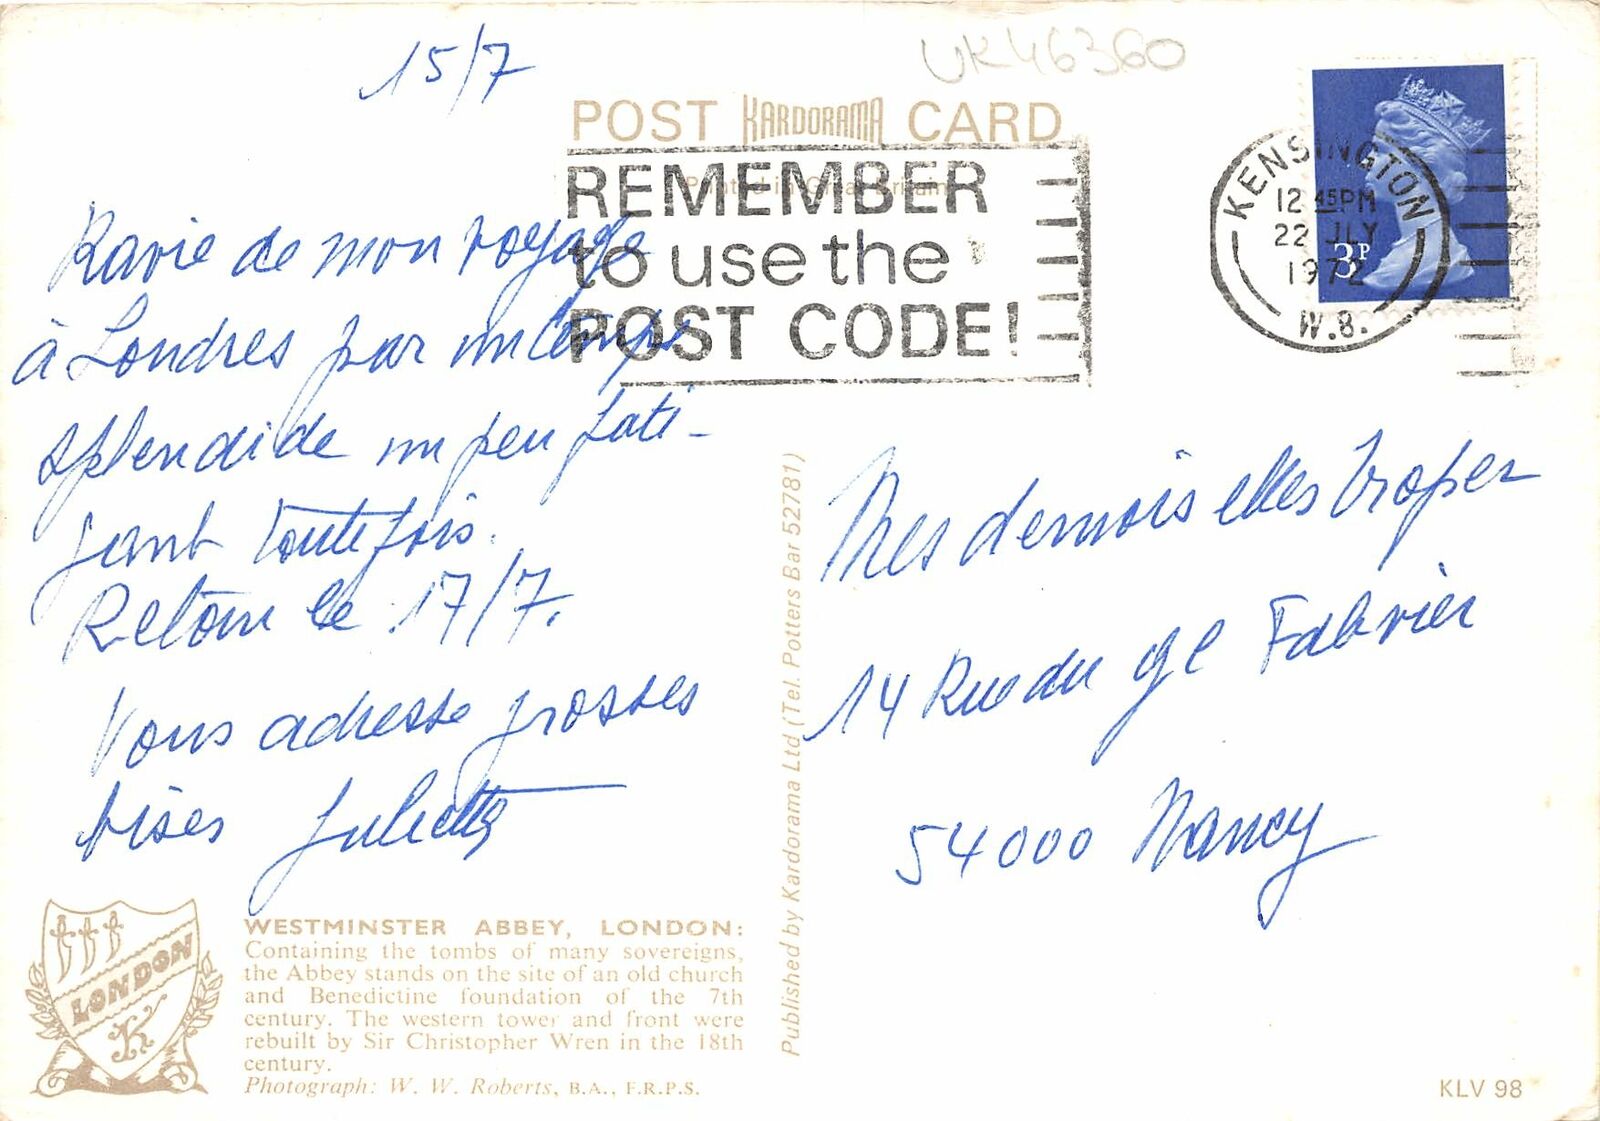 15/7
UK46360
POST KARDORAMA CARD
Printed in Great Britain
REMEMBER
to use the
POST CODE!
KENSINGTON
12 45PM
22 JLY
1972
W.8.
3P
Ravie de mon voyage
à Londres par un temps
splendide un peu fati-
gant toutefois.
Retour le 17/7.
Vous adresse grosses
bises Juliette
Mesdemoiselles Troper
14 Rue du Gl Fabvier
54000 Nancy
Published by Kardorama Ltd (Tel. Potters Bar 52781)
LONDON
K
WESTMINSTER ABBEY, LONDON:
Containing the tombs of many sovereigns,
the Abbey stands on the site of an old church
and Benedictine foundation of the 7th
century. The western tower and front were
rebuilt by Sir Christopher Wren in the 18th
century.
Photograph: W. W. Roberts, B.A., F.R.P.S.
KLV 98